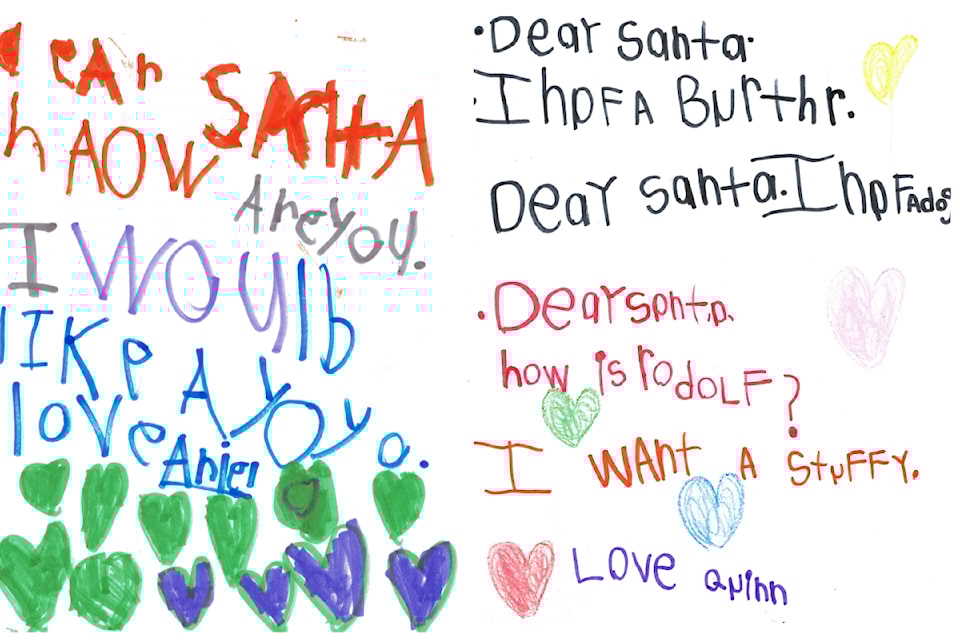 Dear SANtA
hAOW
AReyoy.
I Woylb
lIKe A yoyo.
love Aniel
•Dear santa.
•I hpFA Burthr.
Dear santa. I hpFAdog
•Dear santa.
how is rodoLF?
I WAnt A StuFFY.
Love Quinn